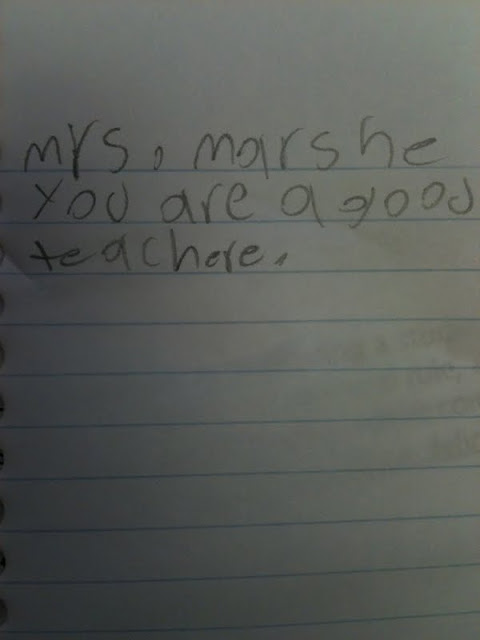 mrs. marshe
you are a good
teachere.